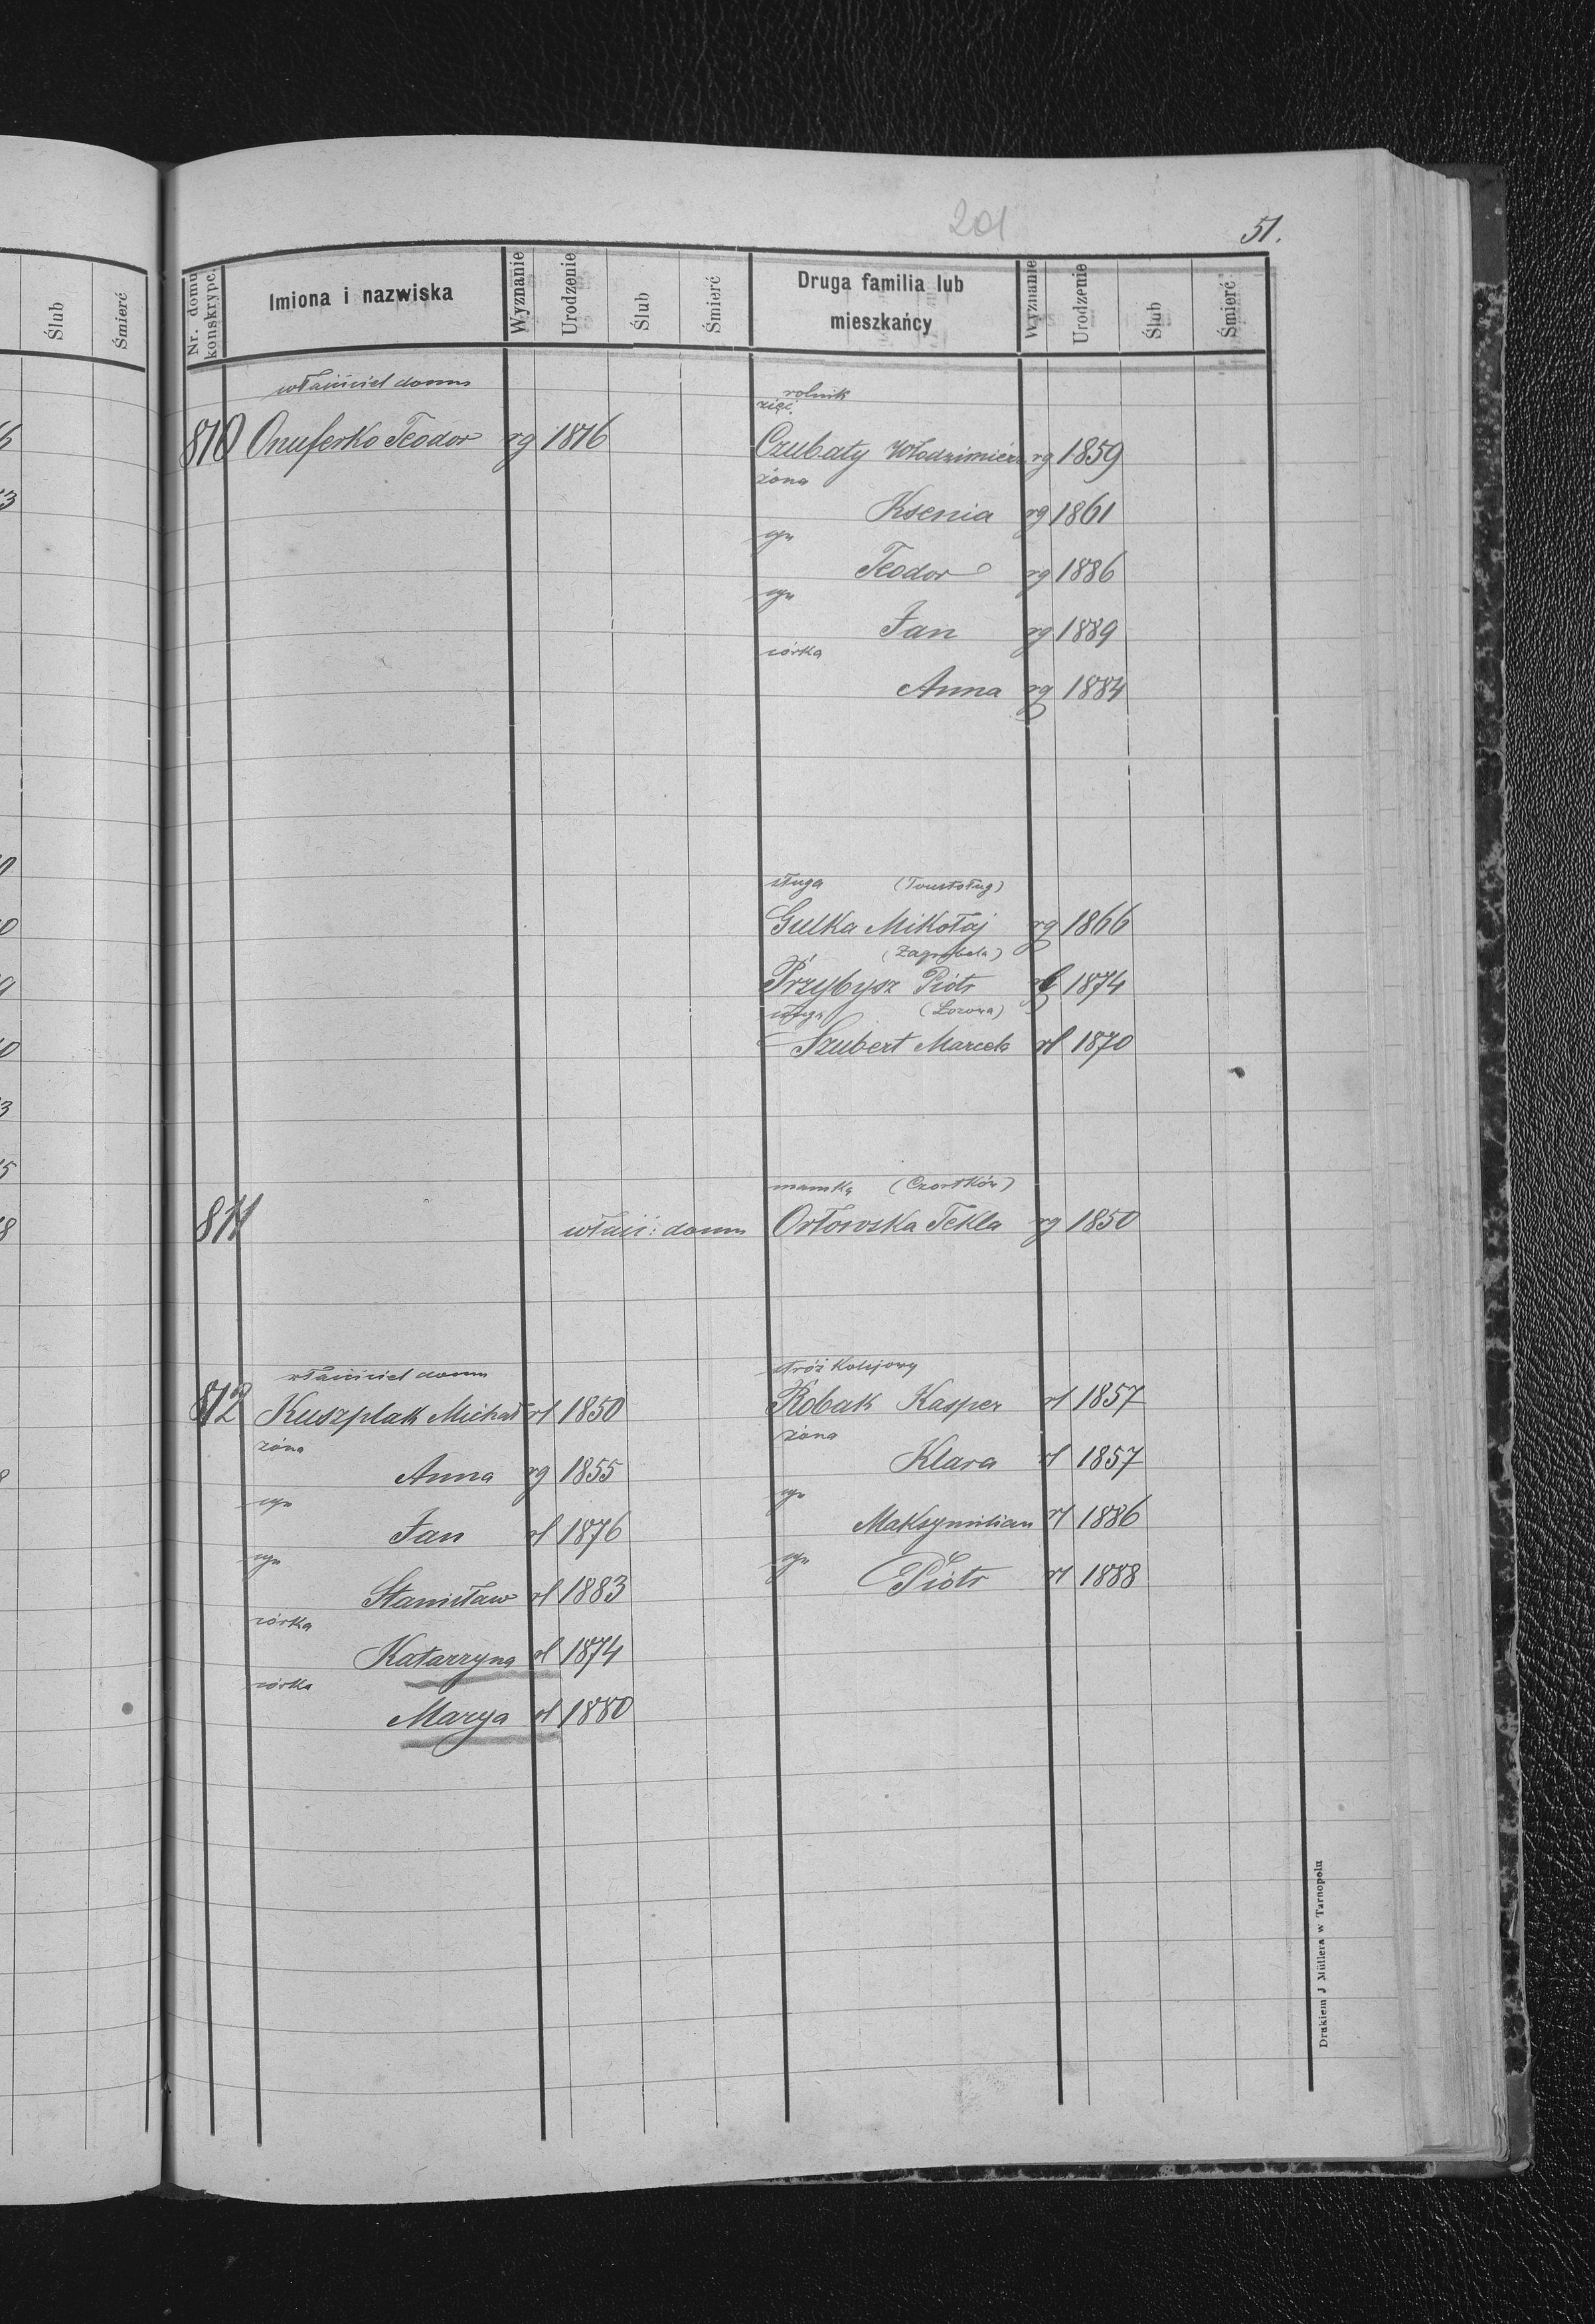 201
51.
Ślub
Śmierć
Nr. domu konskrypc.
Imiona i nazwiska
Wyznanie
Urodzenie
Ślub
Śmierć
Druga familia lub
mieszkańcy
Wyznanie
Urodzenie
Ślub
Śmierć
właściciel domu
810 Onuferko Teodor rg 1816
rolnik
zięć
Czubaty Włodzimierz rg 1859
żona
Ksenia rg 1861
syn
Teodor rg 1886
syn
Jan rg 1889
córka
Anna rg 1884
sługa (Toustoług)
Gulka Mikołaj rg 1866
(Zagrobela)
Przybysz Piotr rł 1874
sługa (Łozowa)
Szubert Marcela rł 1870
mamka (Czortków)
811 właśc: domu Orłowska Tekla rg 1850
właściciel domu
812 Kuszplak Michał rł 1850
żona
Anna rg 1855
syn
Jan rł 1876
syn
Stanisław rł 1883
córka
Katarzyna rł 1874
córka
Marya rł 1880
stróż kolejowy
Robak Kasper rł 1857
żona
Klara rł 1857
syn
Maksymilian rł 1886
syn
Piotr rł 1888
Drukiem J Müllera w Tarnopolu